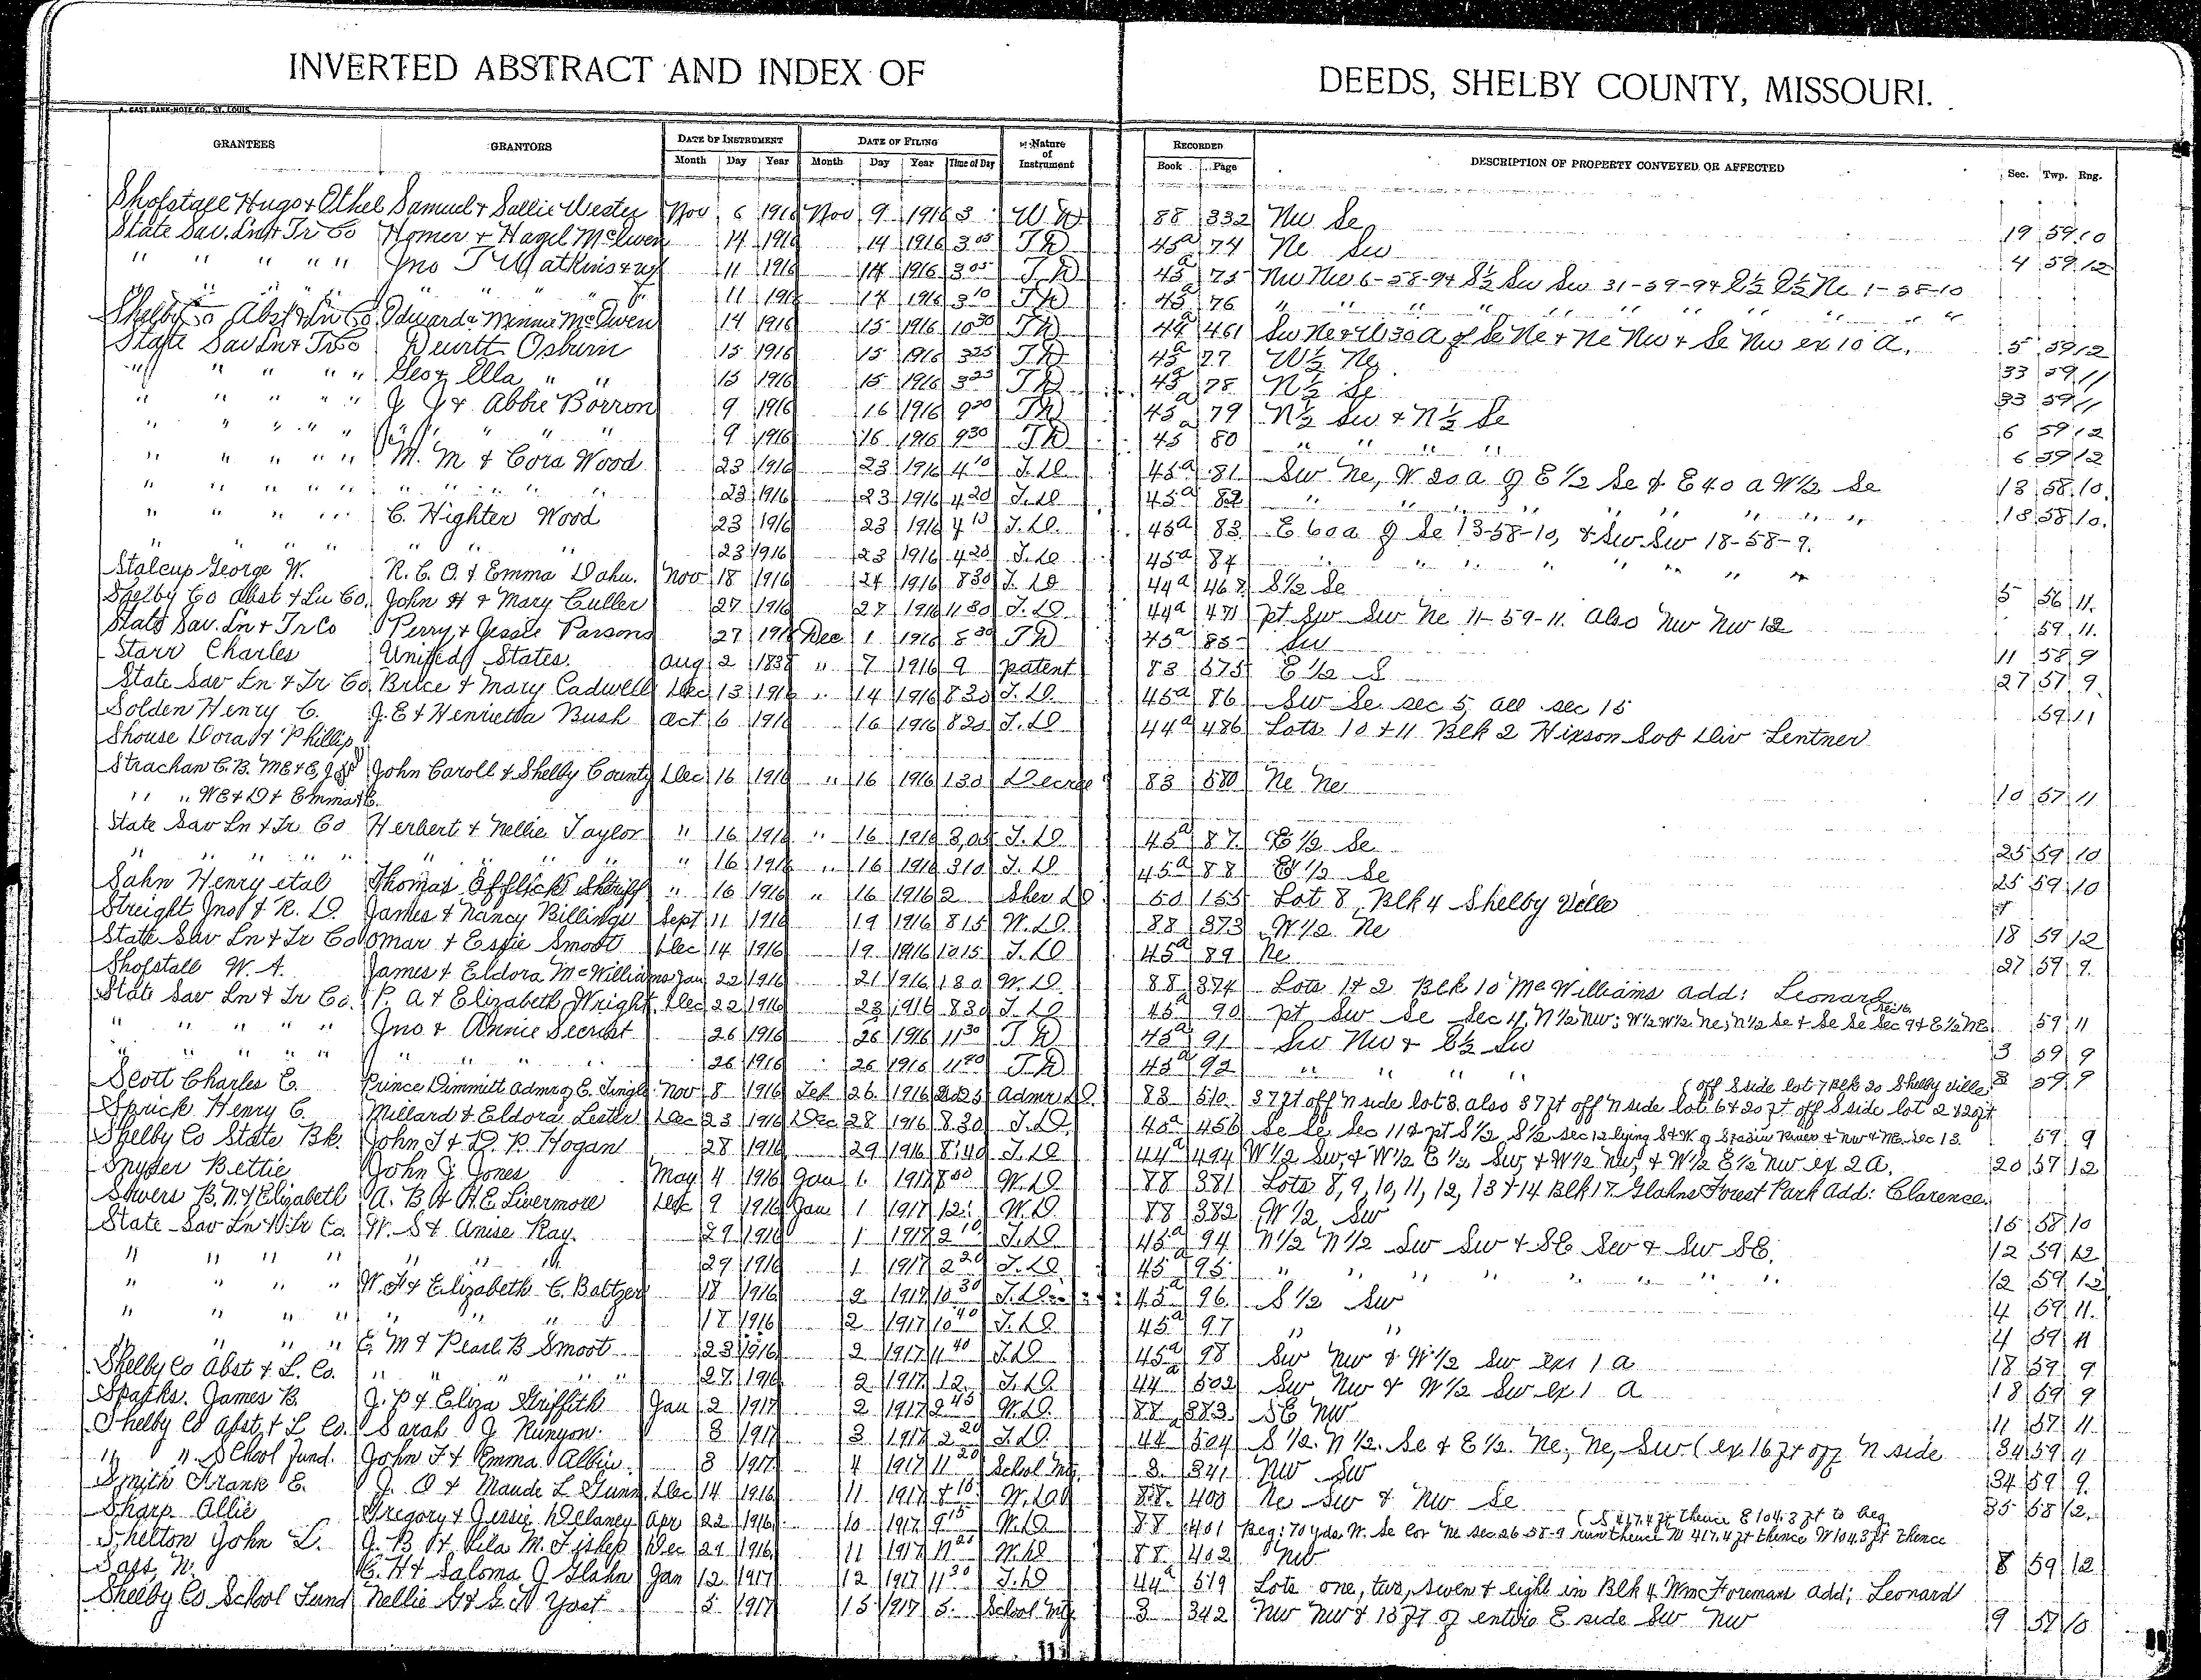 INVERTED ABSTRACT AND INDEX OF DEEDS, SHELBY COUNTY, MISSOURI.
A. GAST BANK NOTE CO., ST. LOUIS
GRANTEES GRANTORS DATE OF INSTRUMENT DATE OF FILING Nature of Instrument RECORDED DESCRIPTION OF PROPERTY CONVEYED OR AFFECTED Sec. Twp. Rng.
Month Day Year Month Day Year Time of Day Book Page
Shofstall Hugo & Ethel Samuel & Sallie Wester Nov 6 1916 Nov 9 1916 3 W D 88 332 Nw Se 19 59 10
State Sav. Ln & Tr Co Homer & Hazel McEwen 14 1916 14 1916 3 05 T D 45a 74 Ne Sw 4 59 12
" " " " " Jno T Watkins & wf 11 1916 14 1916 3 05 T D 45a 75 Nw Nw 6-58-9 & S½ Sw Sw 31-59-9 & E½ E½ Ne 1-58-10
" " " " " " " " " 11 1916 14 1916 3 10 T D 45a 76 " " " " " " " "
Shelby Co Abst & Ln Co Edward & Minnie McEwen 14 1916 15 1916 10 30 T D 44a 461 Sw Ne & W 30 A of Se Ne & Ne Nw & Se Nw ex 10 A. 5 59 12
State Sav Ln & Tr Co Dewitt Osburn 15 1916 15 1916 3 25 T D 45a 77 W½ Ne 33 59 11
" " " " " Geo & Ella " " 15 1916 15 1916 3 25 T D 45a 78 N½ Se 33 59 11
" " " " " J J & Abbie Borron 9 1916 16 1916 9 20 T D 45a 79 N½ Sw & N½ Se 6 59 12
" " " " " " " " " " 9 1916 16 1916 9 30 T D 45a 80 " " " " 6 59 12
" " " " " M. M & Cora Wood 23 1916 23 1916 4 10 T. D. 45a 81 Sw Ne, W 20 a of E 1/2 Se & E 40 a W 1/2 Se 13 58 10.
" " " " " " " " " " 23 1916 23 1916 4 20 T. D. 45a 82 " " " " " " " 13 58 10.
" " " " " C. Highter Wood 23 1916 23 1916 4 15 T. D. 45a 83 E 60 a of Se 13-58-10, & Sw Sw 18-58-9.
" " " " " " " 23 1916 23 1916 4 20 T. D 45a 84 " " " " " " "
Stalcup George W. R. C. O. & Emma Dahu. Nov 18 1916 24 1916 8 30 T. D 44a 467 S 1/2 Se 5 56 11.
Shelby Co Abst & Ln Co. John H & Mary Culler 27 1916 27 1916 11 30 T. D. 44a 471 pt Sw Sw Ne 11-59-11. Also Nw Nw 12 59 11.
State Sav. Ln & Tr Co Perry & Jessie Parsons 27 1916 Dec 1 1916 8 30 T D 45a 85 Sw 11 58 9
Starr Charles United States. Aug 2 1838 " 7 1916 9 patent 83 575 E 1/2 S 27 57 9.
State Sav Ln & Tr Co. Brice & Mary Cadwell Dec 13 1916 " 14 1916 8 30 T. D. 45a 86 Sw Se sec 5, all sec 15 59 11
Solden Henry C. J. E & Henrietta Bush Oct 6 1916 16 1916 8 20 T. D 44a 486 Lots 10 & 11 Blk 2 Hixson Sub Div Lentner
Shouse Dora & Phillip
Strachan C. B. John Caroll & Shelby County Dec 16 1916 " 16 1916 1 30 Decree 83 580 Ne Ne 10 57 11
" " W E & D & Emma E.
State Sav Ln & Tr Co Herbert & Nellie Taylor " 16 1916 " 16 1916 3,05 T. D. 45a 87. E 1/2 Se 25 59 10
" " " " " " " " " " 16 1916 " 16 1916 3 10 T. D. 45a 88 E 1/2 Se 25 59 10
Sahn Henry etal Thomas Afflick Sheriff " 16 1916 " 16 1916 2 Sher D. 50 155 Lot 8, Blk 4 Shelby Ville
Streight Jno & R. D. James & Nancy Billings Sept 11 1916 19 1916 8 15 W. D. 88 373 W 1/2 Ne 18 59 12
State Sav Ln & Tr Co Omar & Essie Smoot Dec 14 1916 19 1916 10 15 T. D 45a 89 Ne 27 59 9.
Shofstall W. A. James & Eldora McWilliams Jan 22 1916 21 1916 1 30 W. D 88 374 Lots 1 & 2 Blk 10 McWilliams add: Leonard
State Sav Ln & Tr Co. P. A & Elizabeth Wright Dec 22 1916 23 1916 8 30 T. D 45a 90 pt Sw Se Sec 4, N 1/2 NW; W 1/2 W 1/2 Ne; N 1/2 Se & Se Se Sec 9 & E 1/2 NE 59 11
" " " " " Jno & Annie Secrist 26 1916 26 1916 11 30 T D 45a 91 Sw Nw & E½ Sw 3 59 9
" " " " " " " " " 26 1916 26 1916 11 40 T. D 45a 92 " " " " " 3 59 9
Scott Charles E. Prince Dimmitt Admr of E. Tingle Nov 8 1916 Feb 26 1916 Admr D. 83 510 37 ft off N side lot 3. also 37 ft off N side lot 6 & 20 ft off S side lot 2 & 20 ft (off S side lot 7 Blk 20 Shelby ville
Sprick Henry C. Millard & Eldora Lester Dec 23 1916 Dec 28 1916 8 30 T. D. 45a 456 Se Se Sec 11 & pt S 1/2 S 1/2 Sec 12 lying S & W of River & Nw & Ne Sec 13. 59 9
Shelby Co State Bk. John T & D. P. Hogan 28 1916 29 1916 8:40 T. D 44a 494 W 1/2 Sw, & W 1/2 E 1/2 Sw, & W 1/2 Nw, & W 1/2 E 1/2 Nw ex 2 A. 20 57 12
Snyder Bettie John J Jones May 4 1916 Jan 1. 1917 8 00 W. D 88 381 Lots 8, 9, 10, 11, 12, 13 & 14 Blk 17 Glahns Forest Park Add: Clarence.
Sowers B. N. & Elizabeth A. B. & A. E Livermore Dec 9 1916 Jan 1 1917 12: W. D. 88 382 W 1/2 Sw 15 58 10
State Sav Ln & Tr Co. W. S & Anise Ray. 29 1916 1 1917 2 10 T. D 45a 94 N 1/2 N 1/2 Sw Sw & SE Sw & Sw SE. 12 59 12
" " " " " " " 29 1916 1 1917 2 20 T. D 45a 95 " " " " " " " 12 59 12
" " " " W. F & Elizabeth C. Baltzer 18 1916 2 1917 10 30 T. D. 45a 96. S 1/2 Sw 4 59 11.
" " " " " " " 18 1916 2 1917 10 40 T. D 45a 97 " " 4 59 11
" " " " C. M & Pearl B Smoot 23 1916 2 1917 11 40 T. D 45a 98 Sw Nw & W 1/2 Sw ex 1 a 18 59 9
Shelby Co Abst & L. Co. " " " " " 27 1916 2 1917 12 T. D. 44a 502 Sw Nw & W 1/2 Sw ex 1 A 18 59 9
Sparks. James B. J. P & Eliza Griffith Jan 2 1917 2 1917 2 45 W. D. 88 383 SE NW 11 57 11.
Shelby Co Abst & L Co. Sarah J Runyon. 3 1917 3 1917 2 20 T. D 44 504 S 1/2. N 1/2. Se & E 1/2. Ne, Ne, Sw (ex 16 ft off N side 34 59 11
" " School Fund. John F & Emma Albin 3 1917 4 1917 11 20 School Mtg. 3 341 NW Sw 34 59 9.
Smith Frank E. J. O & Maude L Gunn. Dec 14 1916 11 1917 8 10 W. D 88 400 Ne Sw & NW Se 35 58 12.
Sharp Allie Gregory & Jessie Delaney Apr 22 1916 10 1917 9 15 W. D 88 401 Beg: 70 yds N. Se Cor Ne sec 26-58-9 run thence N 417.4 ft thence W 104.3 ft thence (S 417.4 ft thence E 104.3 ft to beg.
Shelton John L. J. B & Lila M. Fishep Dec 29 1916 11 1917 11 20 W. D 88 402 NW 8 59 12
Sass, N. C. H & Saloma J Glahn Jan 12 1917 12 1917 11 30 T. D 44a 519 Lots one, two, seven & eight in Blk 4 Wm Foremans add: Leonard
Shelby Co School Fund Nellie G & G. W Yost 5 1917 15 1917 5. School Mtg 3 342 NW NW & 13 ft of entire E side Sw NW 9 57 10